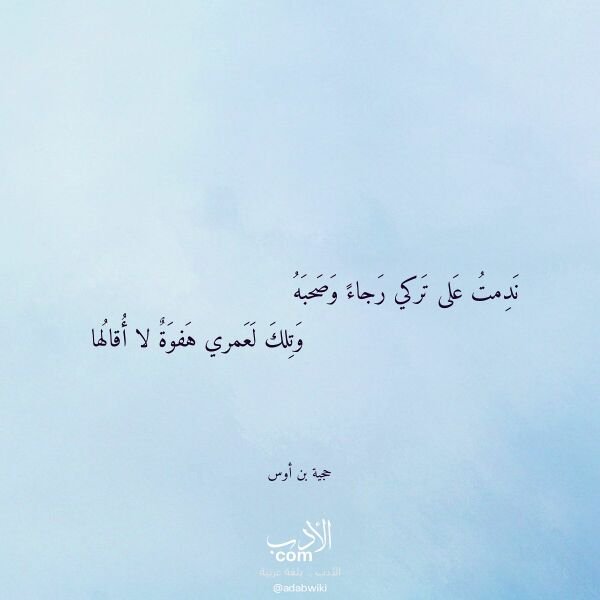 نَدِمتُ عَلى تَركي رَجاءً وَصَحبَهُ
وَتِلكَ لَعَمري هَفوَةٌ لا أُقالُها
حجية بن أوس
الأدب
com
الأدب .. بلغة عربية
@adabwiki